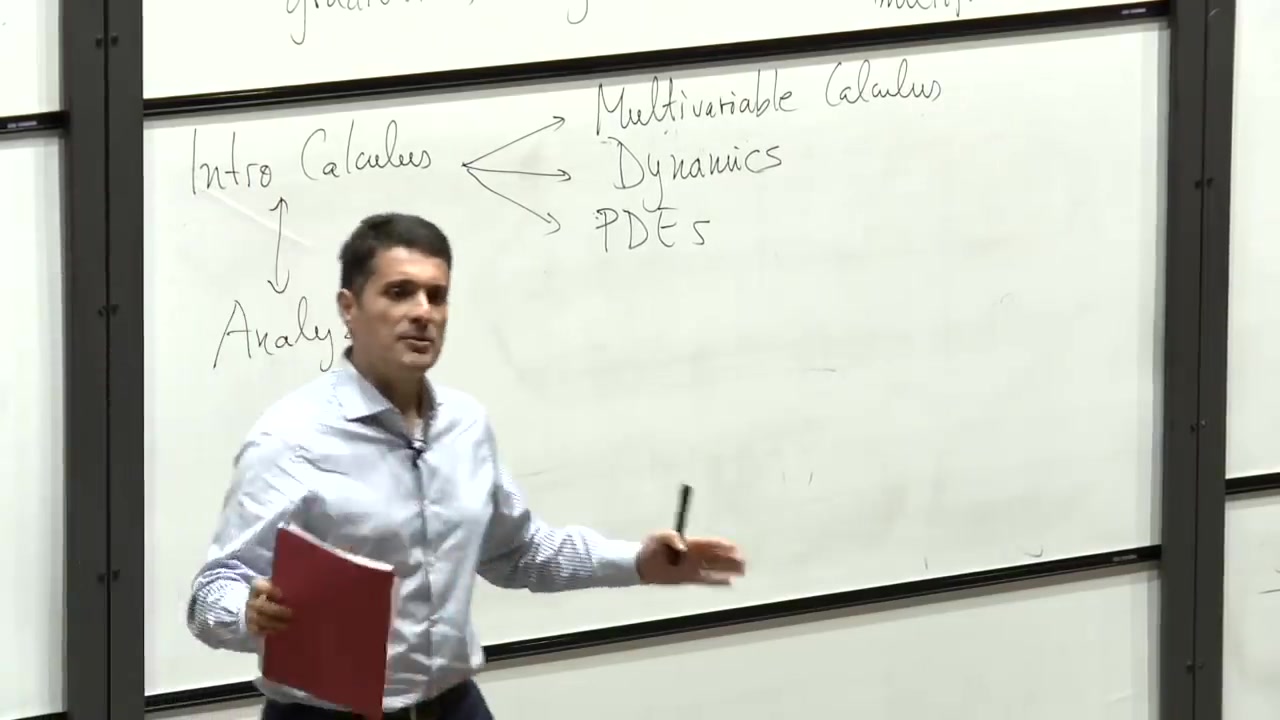 Intro Calculus
Multivariable Calculus
Dynamics
PDEs